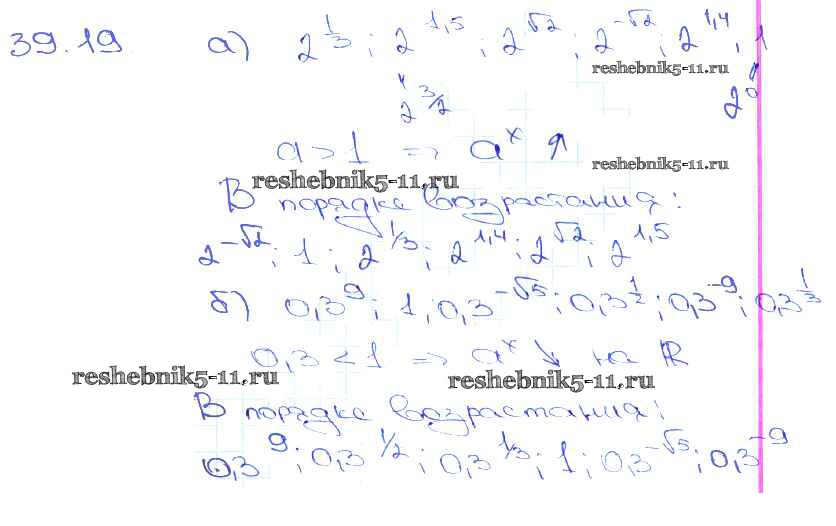 39.19. а) 2^{1/3}; 2^{1,5}; 2^{√2}; 2^{-√2}; 2^{1,4}, 1
reshebnik5-11.ru
2^{3/2} 2^0
a > 1 => a^x ↑
reshebnik5-11.ru
reshebnik5-11.ru
В порядке возрастания:
2^{-√2}; 1; 2^{1/3}; 2^{1,4}; 2^{√2}; 2^{1,5}
б) 0,3^9; 1; 0,3^{-√5}; 0,3^{1/2}; 0,3^{-9}; 0,3^{1/3}
0,3 < 1 => a^x ↓ на R
reshebnik5-11.ru
reshebnik5-11.ru
В порядке возрастания:
0,3^9; 0,3^{1/2}; 0,3^{1/3}; 1; 0,3^{-√5}; 0,3^{-9}